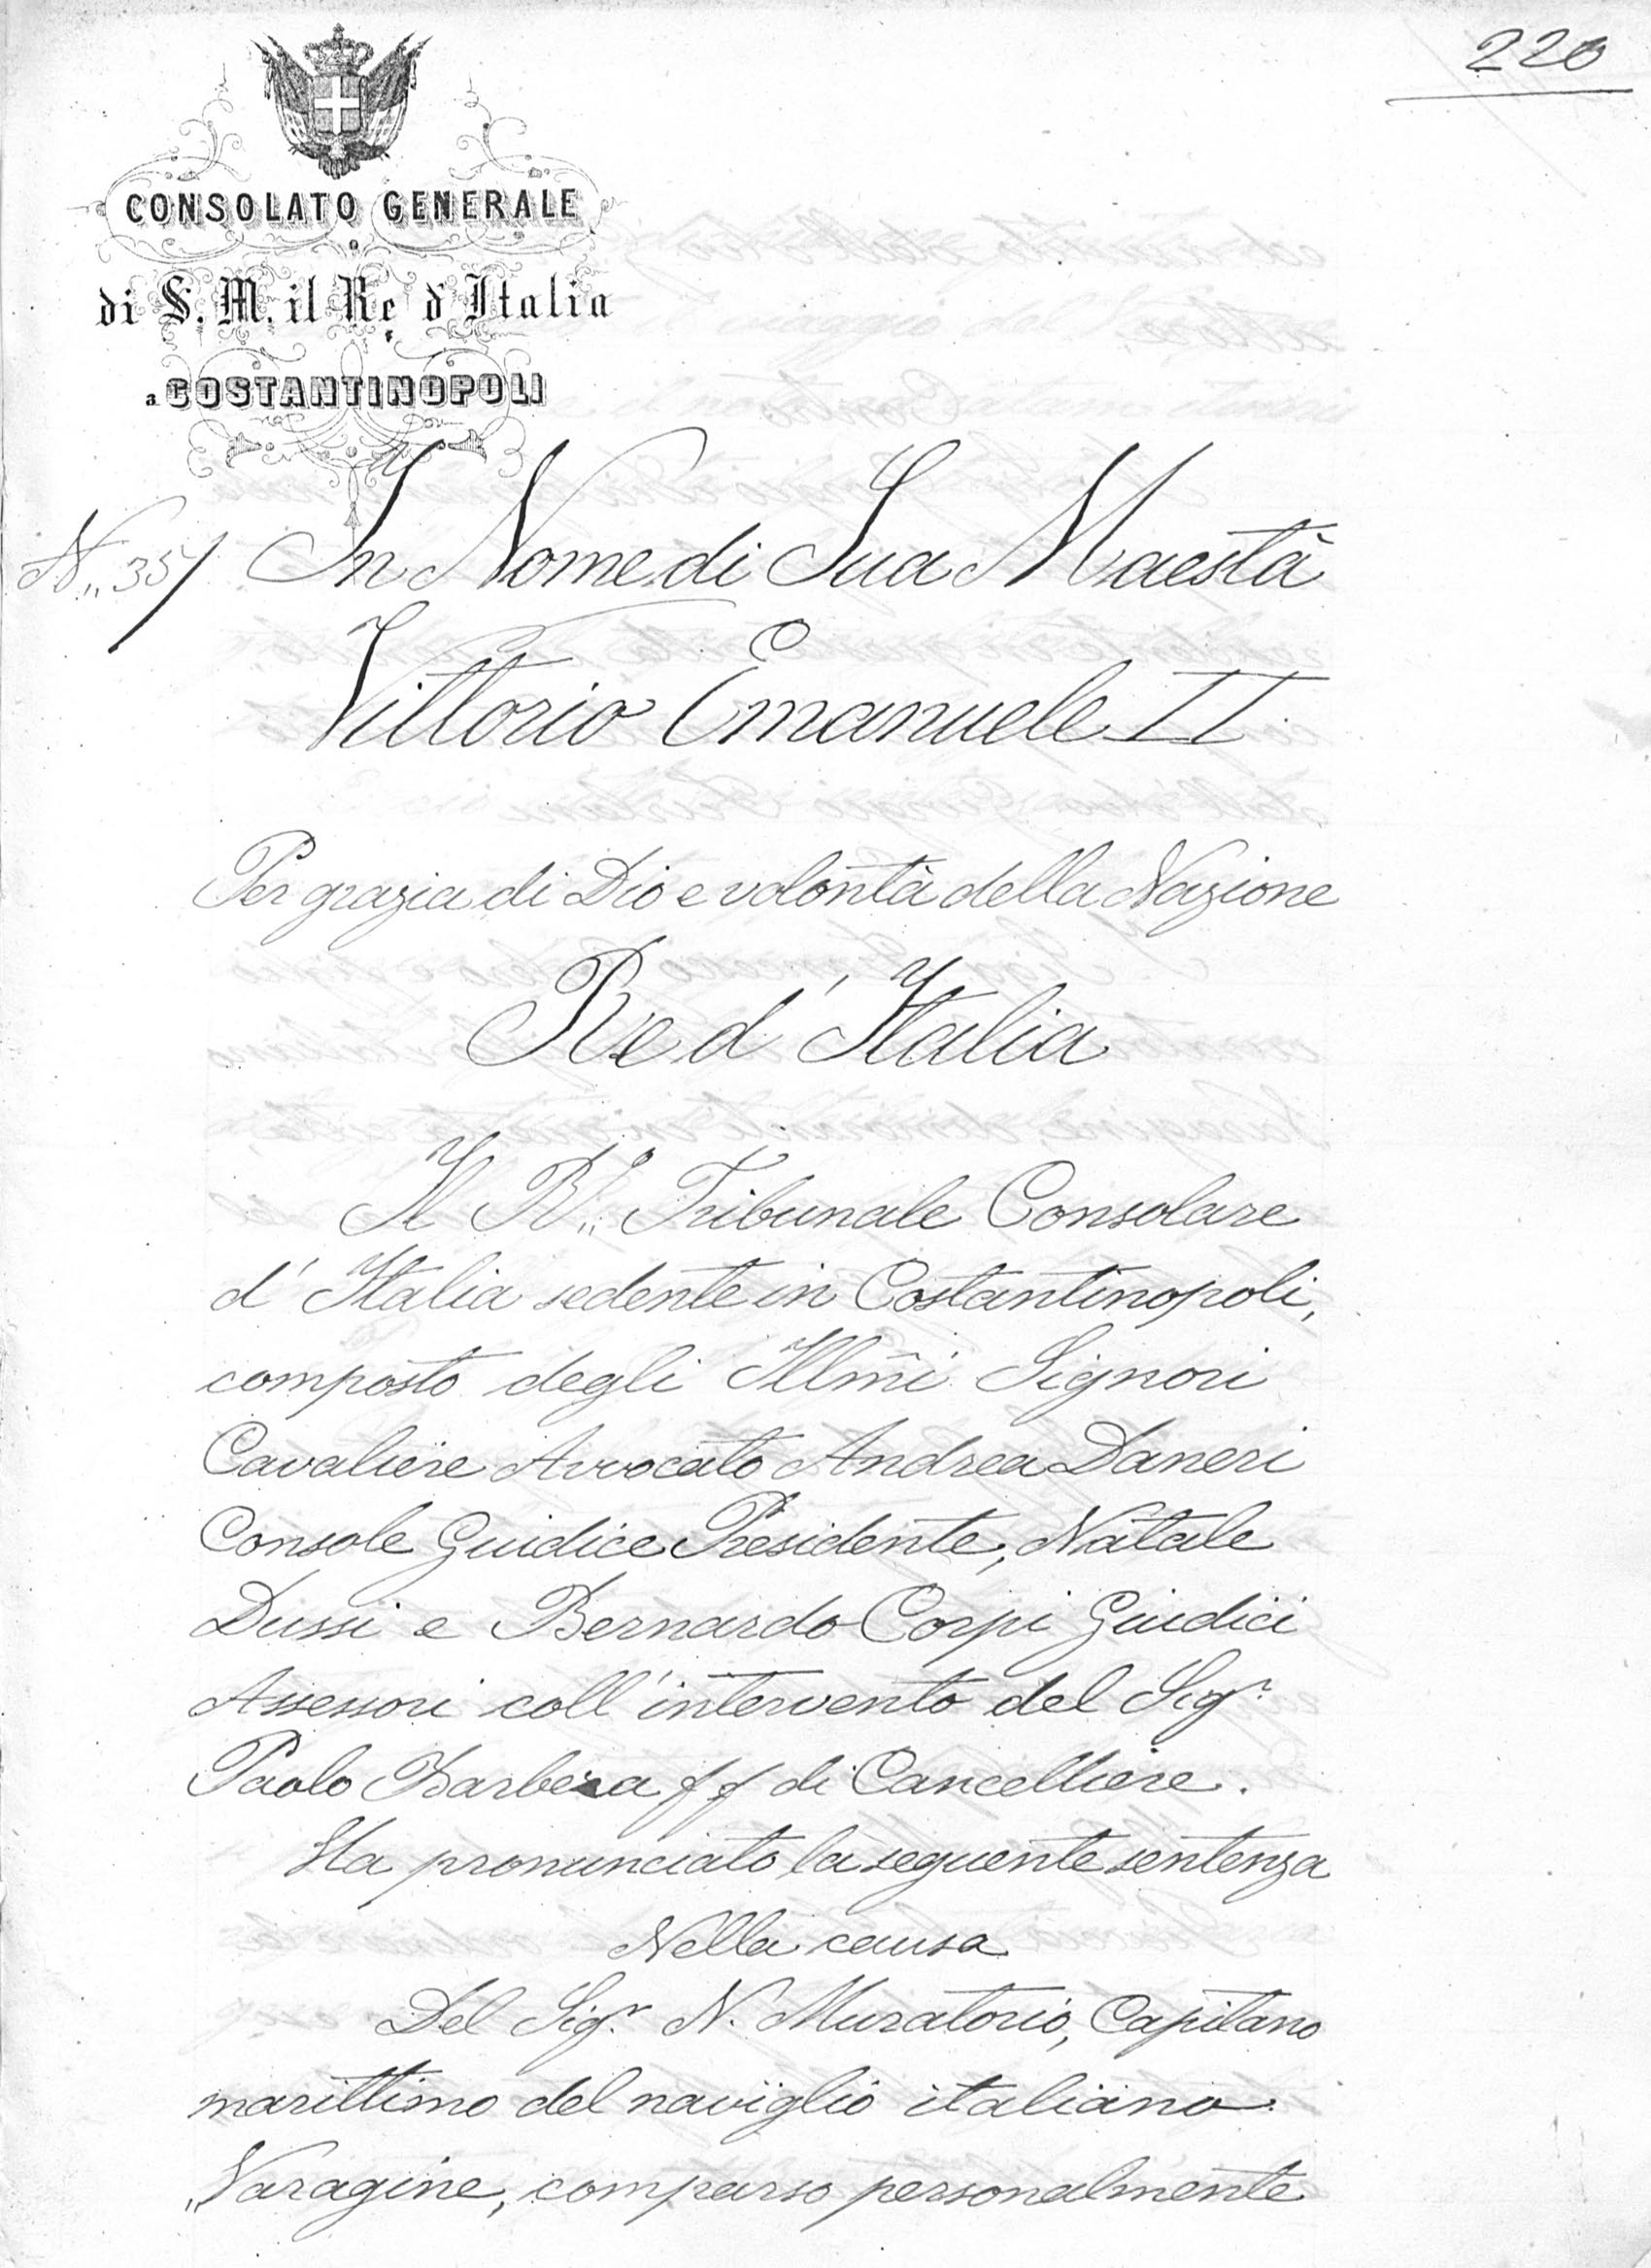 220
CONSOLATO GENERALE
di S. M. il Re d'Italia
a COSTANTINOPOLI
N,, 35/
In Nome di Sua Maestà
Vittorio Emanuele II
Per grazia di Dio e volontà della Nazione
Re d'Italia
Il R,,º Tribunale Consolare
d'Italia sedente in Costantinopoli,
composto degli Illmi Signori
Cavaliere Avvocato Andrea Daneri
Console Giudice Presidente, Natale
Dussi e Bernardo Corpi Giudici
Assessori coll'intervento del Sigr.
Paolo Barbera ff di Cancelliere.
Ha pronunciato la seguente sentenza
Nella causa
Del Sigr. N. Muratorio, Capitano
marittimo del naviglio italiano
"Varagine, comparso personalmente